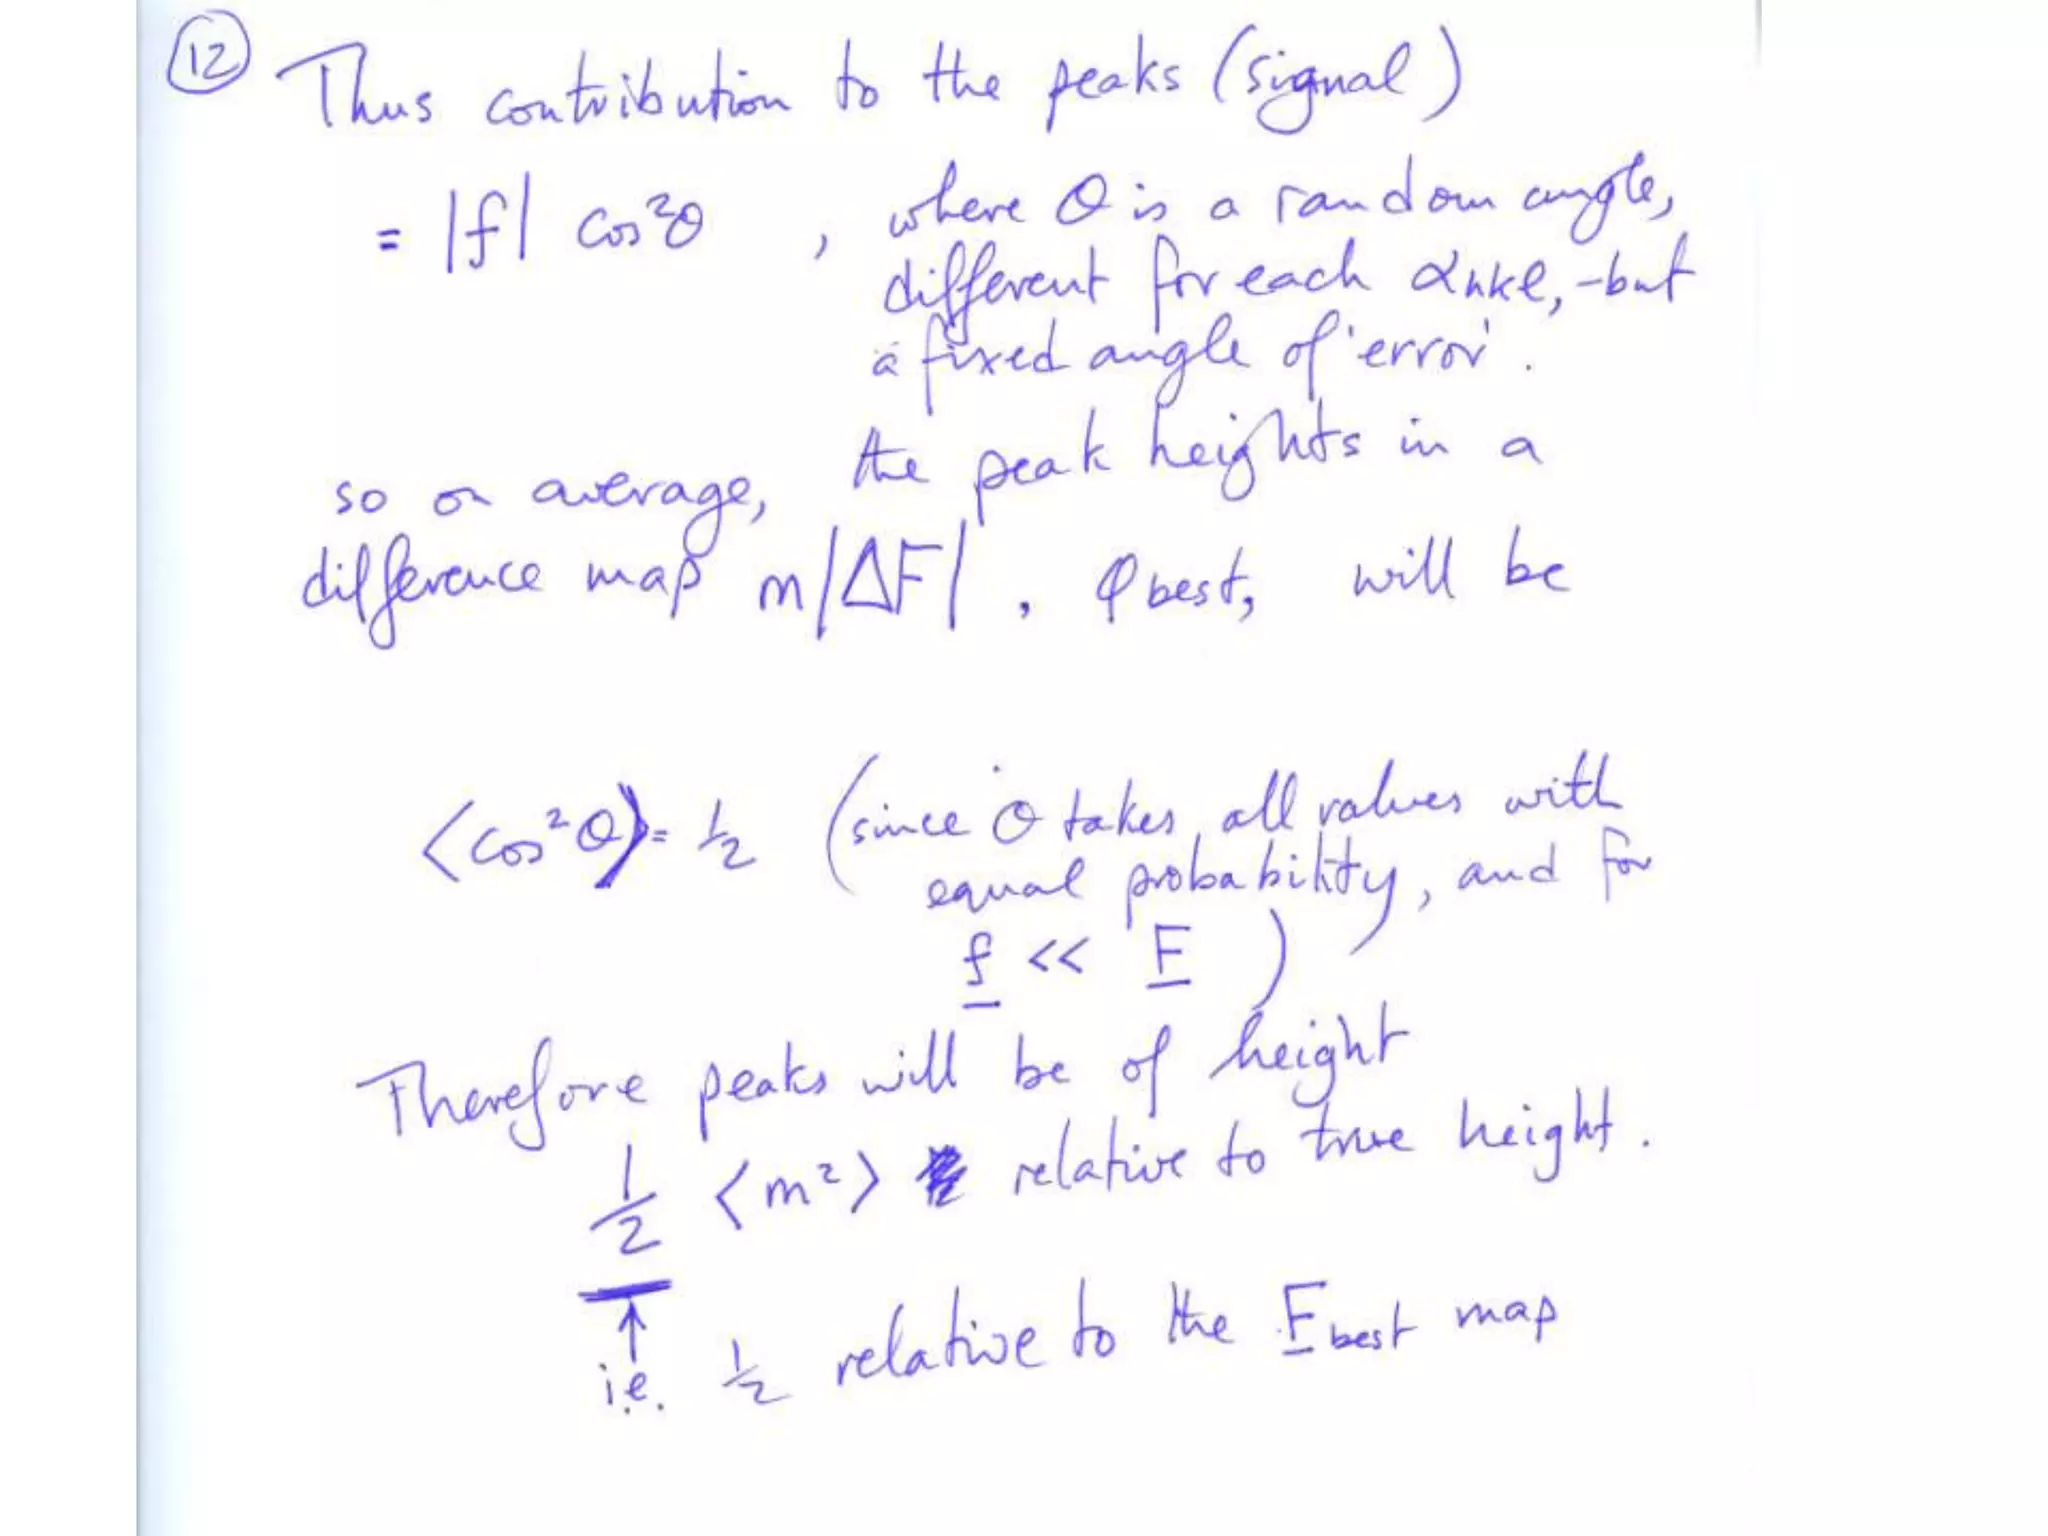 12 Thus contribution to the peaks (signal)
= |f| cos²θ , where θ is a random angle,
different for each αhkl, - but
a fixed angle of 'error'.
so on average, the peak heights in a
difference map m|ΔF|, φbest, will be
<cos²θ> = ½ (since θ takes all values with
equal probability, and for
f << F )
Therefore peaks will be of height
1/2 <m²> relative to true height.
↑
i.e. ½ relative to the Fbest map